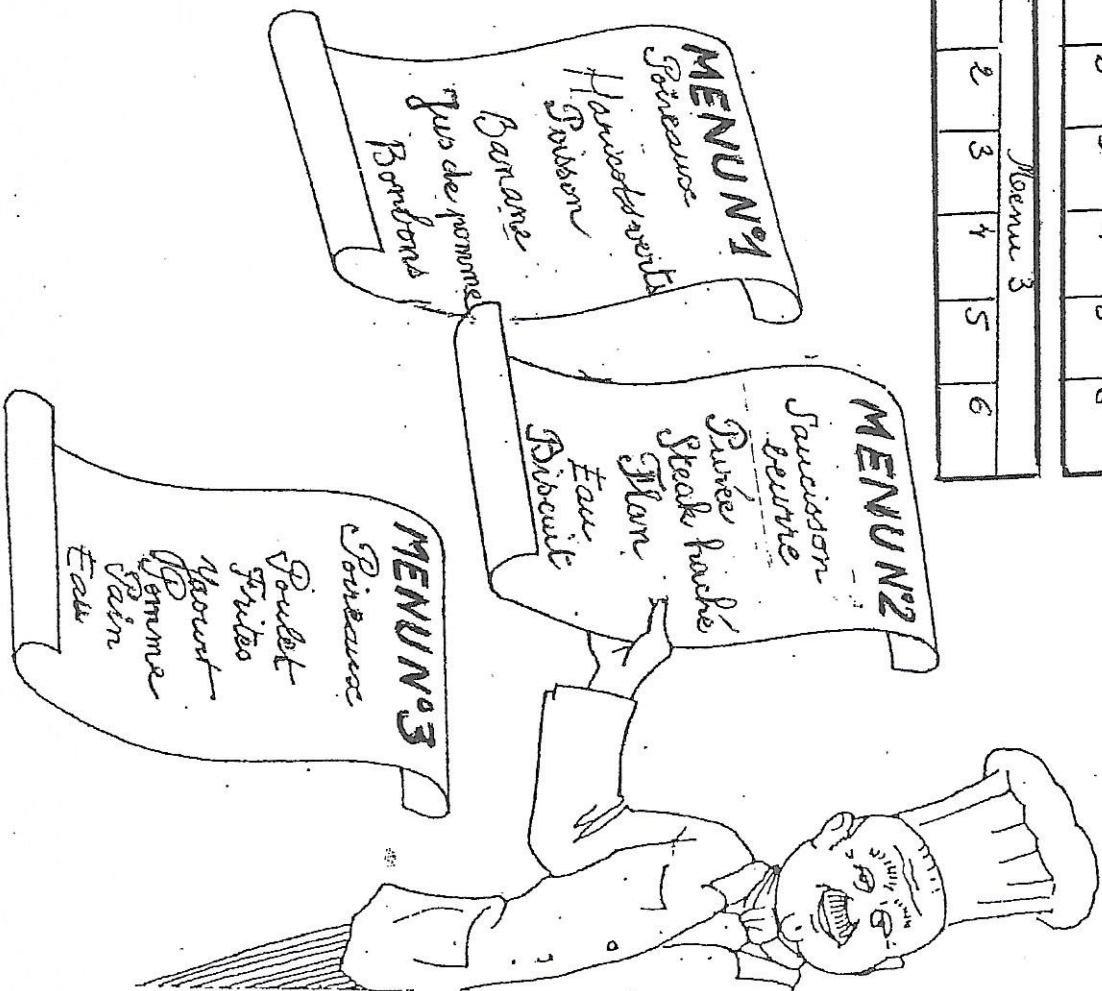 MENU N°1
Poireaux
Haricots verts
Poisson
Banane
Jus de pomme
Bonbons
MENU N°2
Saucisson
beurre
Purée
Steak haché
Flan
Eau
Biscuit
MENU N°3
Poireaux
Poulet
Frites
Yaourt
Pomme
Pain
Eau
Menu 3
2 3 4 5 6